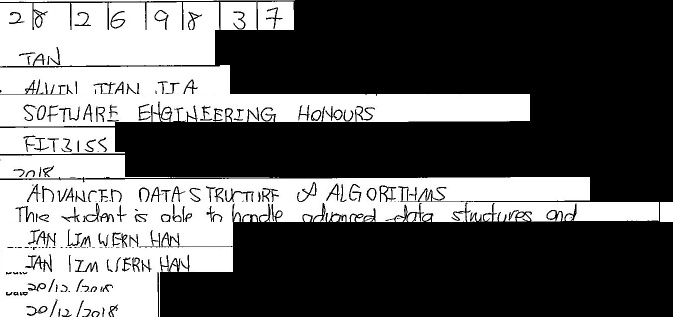 28269837
TAN
ALVIN JIAN JIA
SOFTWARE ENGINEERING HONOURS
FIT3155
2018
ADVANCED DATA STRUCTURE & ALGORITHMS
This student is able to handle advanced data structures and
IAN LIM WERN HAN
IAN LIM WERN HAN
Date
20/12/2018
Date
20/12/2018